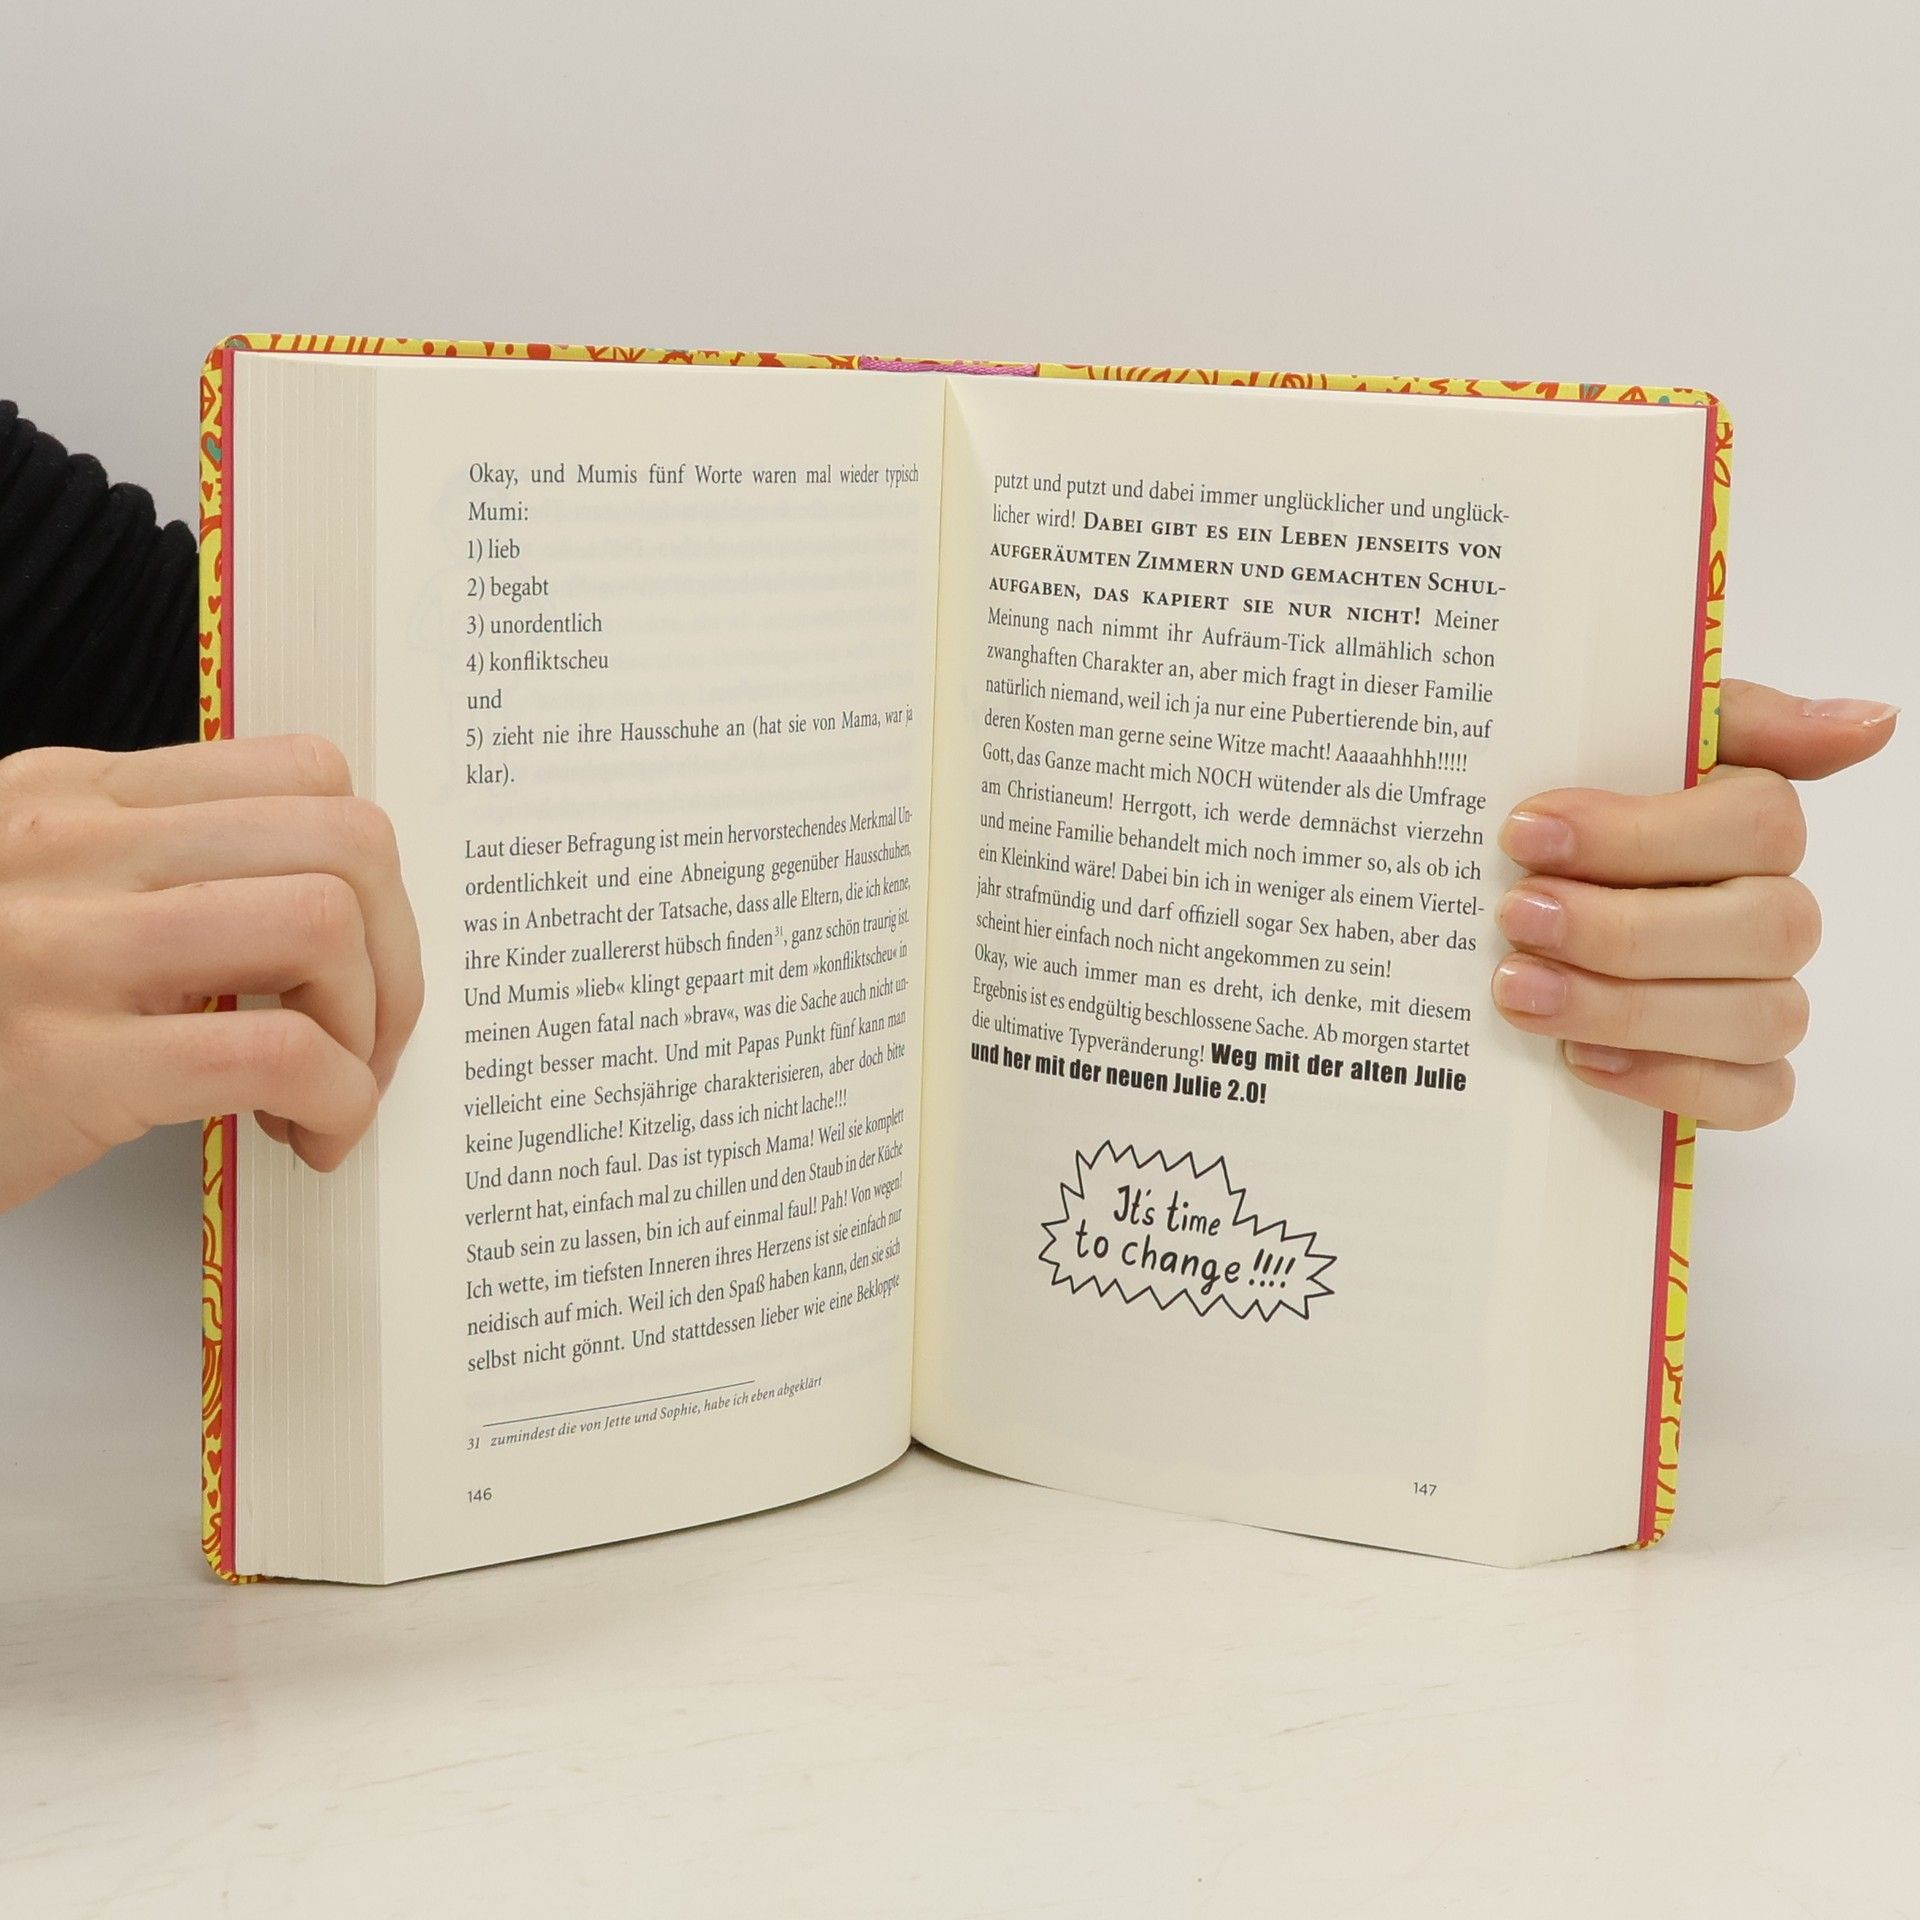 Okay, und Mumis fünf Worte waren mal wieder typisch
Mumi:
1) lieb
2) begabt
3) unordentlich
4) konfliktscheu
und
5) zieht nie ihre Hausschuhe an (hat sie von Mama, war ja
klar).
Laut dieser Befragung ist mein hervorstechendes Merkmal Un-
ordentlichkeit und eine Abneigung gegenüber Hausschuhen,
was in Anbetracht der Tatsache, dass alle Eltern, die ich kenne,
ihre Kinder zuallererst hübsch finden³¹, ganz schön traurig ist.
Und Mumis »lieb« klingt gepaart mit dem »konfliktscheu« in
meinen Augen fatal nach »brav«, was die Sache auch nicht un-
bedingt besser macht. Und mit Papas Punkt fünf kann man
vielleicht eine Sechsjährige charakterisieren, aber doch bitte
keine Jugendliche! Kitzelig, dass ich nicht lache!!!
Und dann noch faul. Das ist typisch Mama! Weil sie komplett
verlernt hat, einfach mal zu chillen und den Staub in der Küche
Staub sein zu lassen, bin ich auf einmal faul! Pah! Von wegen!
Ich wette, im tiefsten Inneren ihres Herzens ist sie einfach nur
neidisch auf mich. Weil ich den Spaß haben kann, den sie sich
selbst nicht gönnt. Und stattdessen lieber wie eine Bekloppte
31 zumindest die von Jette und Sophie, habe ich eben abgeklärt
146
putzt und putzt und dabei immer unglücklicher und unglück-
licher wird! DABEI GIBT ES EIN LEBEN JENSEITS VON
AUFGERÄUMTEN ZIMMERN UND GEMACHTEN SCHUL-
AUFGABEN, DAS KAPIERT SIE NUR NICHT! Meiner
Meinung nach nimmt ihr Aufräum-Tick allmählich schon
zwanghaften Charakter an, aber mich fragt in dieser Familie
natürlich niemand, weil ich ja nur eine Pubertierende bin, auf
deren Kosten man gerne seine Witze macht! Aaaaahhhh!!!!!
Gott, das Ganze macht mich NOCH wütender als die Umfrage
am Christianeum! Herrgott, ich werde demnächst vierzehn
und meine Familie behandelt mich noch immer so, als ob ich
ein Kleinkind wäre! Dabei bin ich in weniger als einem Viertel-
jahr strafmündig und darf offiziell sogar Sex haben, aber das
scheint hier einfach noch nicht angekommen zu sein!
Okay, wie auch immer man es dreht, ich denke, mit diesem
Ergebnis ist es endgültig beschlossene Sache. Ab morgen startet
die ultimative Typveränderung! Weg mit der alten Julie
und her mit der neuen Julie 2.0!
It's time
to change!!!!
147